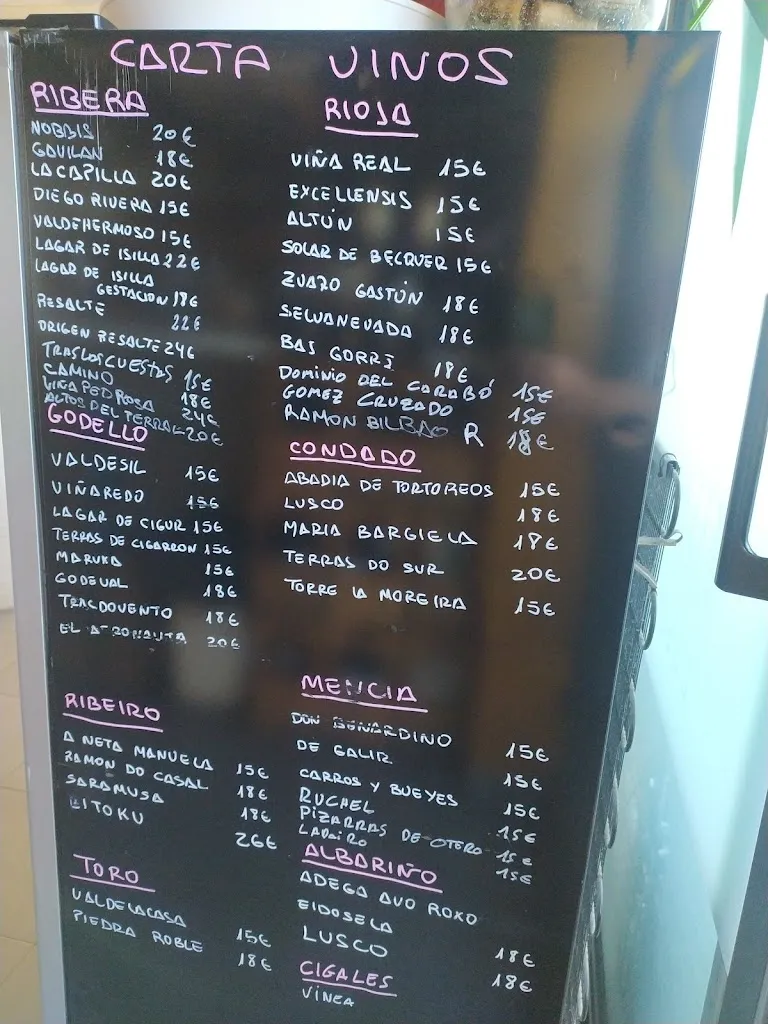 CARTA VINOS
RIBERA
NOBBIS 20€
GAVILAN 18€
LA CAPILLA 20€
DIEGO RIVERA 15€
VALDEHERMOSO 15€
LAGAR DE ISILLA 22€
LAGAR DE ISILLA
GESTACION 18€
RESALTE 22€
ORIGEN RESALTE 24€
TRASLOSCUESTOS 15€
CAMINO 18€
VIÑA PEDROSA 24€
ALTOS DEL TERRAL 20€
GODELLO
VALDESIL 15€
VIÑAREDO 15€
LAGAR DE CIGUR 15€
TERRAS DE CIGARRON 15€
MARUXA 15€
GODEVAL 18€
TRASDOVENTO 18€
EL 20€
RIBEIRO
A NETA MANUELA 15€
RAMON DO CASAL 18€
SARAMUSA 18€
EITOKU 26€
TORO
VALDELACASA 15€
PIEDRA ROBLE 18€
RIOJA
VIÑA REAL 15€
EXCELLENSIS 15€
ALTÚN 15€
SOLAR DE BECQUER 15€
ZUAZO GASTÓN 18€
SELVANEVADA 18€
BAS GORRI 18€
DOMINIO DEL CARABÓ 15€
GOMEZ CRUZADO 15€
RAMON BILBAO R 18€
CONDADO
ABADIA DE TORTOREOS 15€
LUSCO 18€
MARIA BARGIELA 18€
TERRAS DO SUR 20€
TORRE LA MOREIRA 15€
MENCIA
DON BENARDINO 15€
DE GALIR 15€
CARROS Y BUEYES 15€
RUCHEL 15€
PIZARRAS DE OTERO 15€
LADAIRO 15€
ALBARIÑO
ADEGA AVO ROXO
EIDOSELA 18€
LUSCO 18€
CIGALES
VINEA